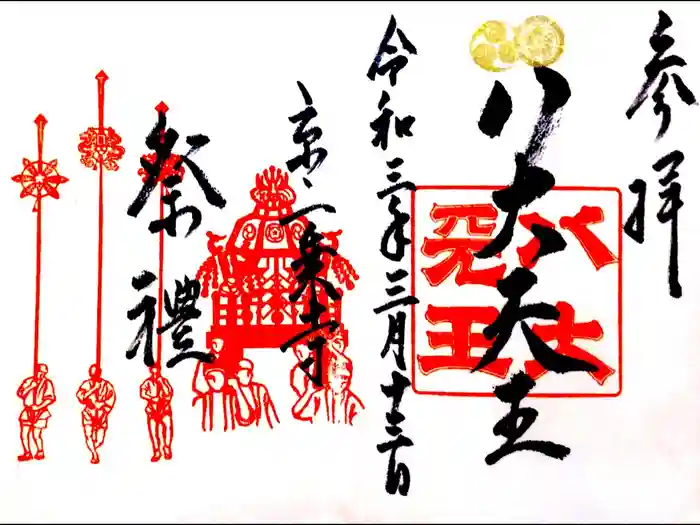 参拝
八大天王
八大天王
令和三年三月十三日
京一乗寺
祭禮